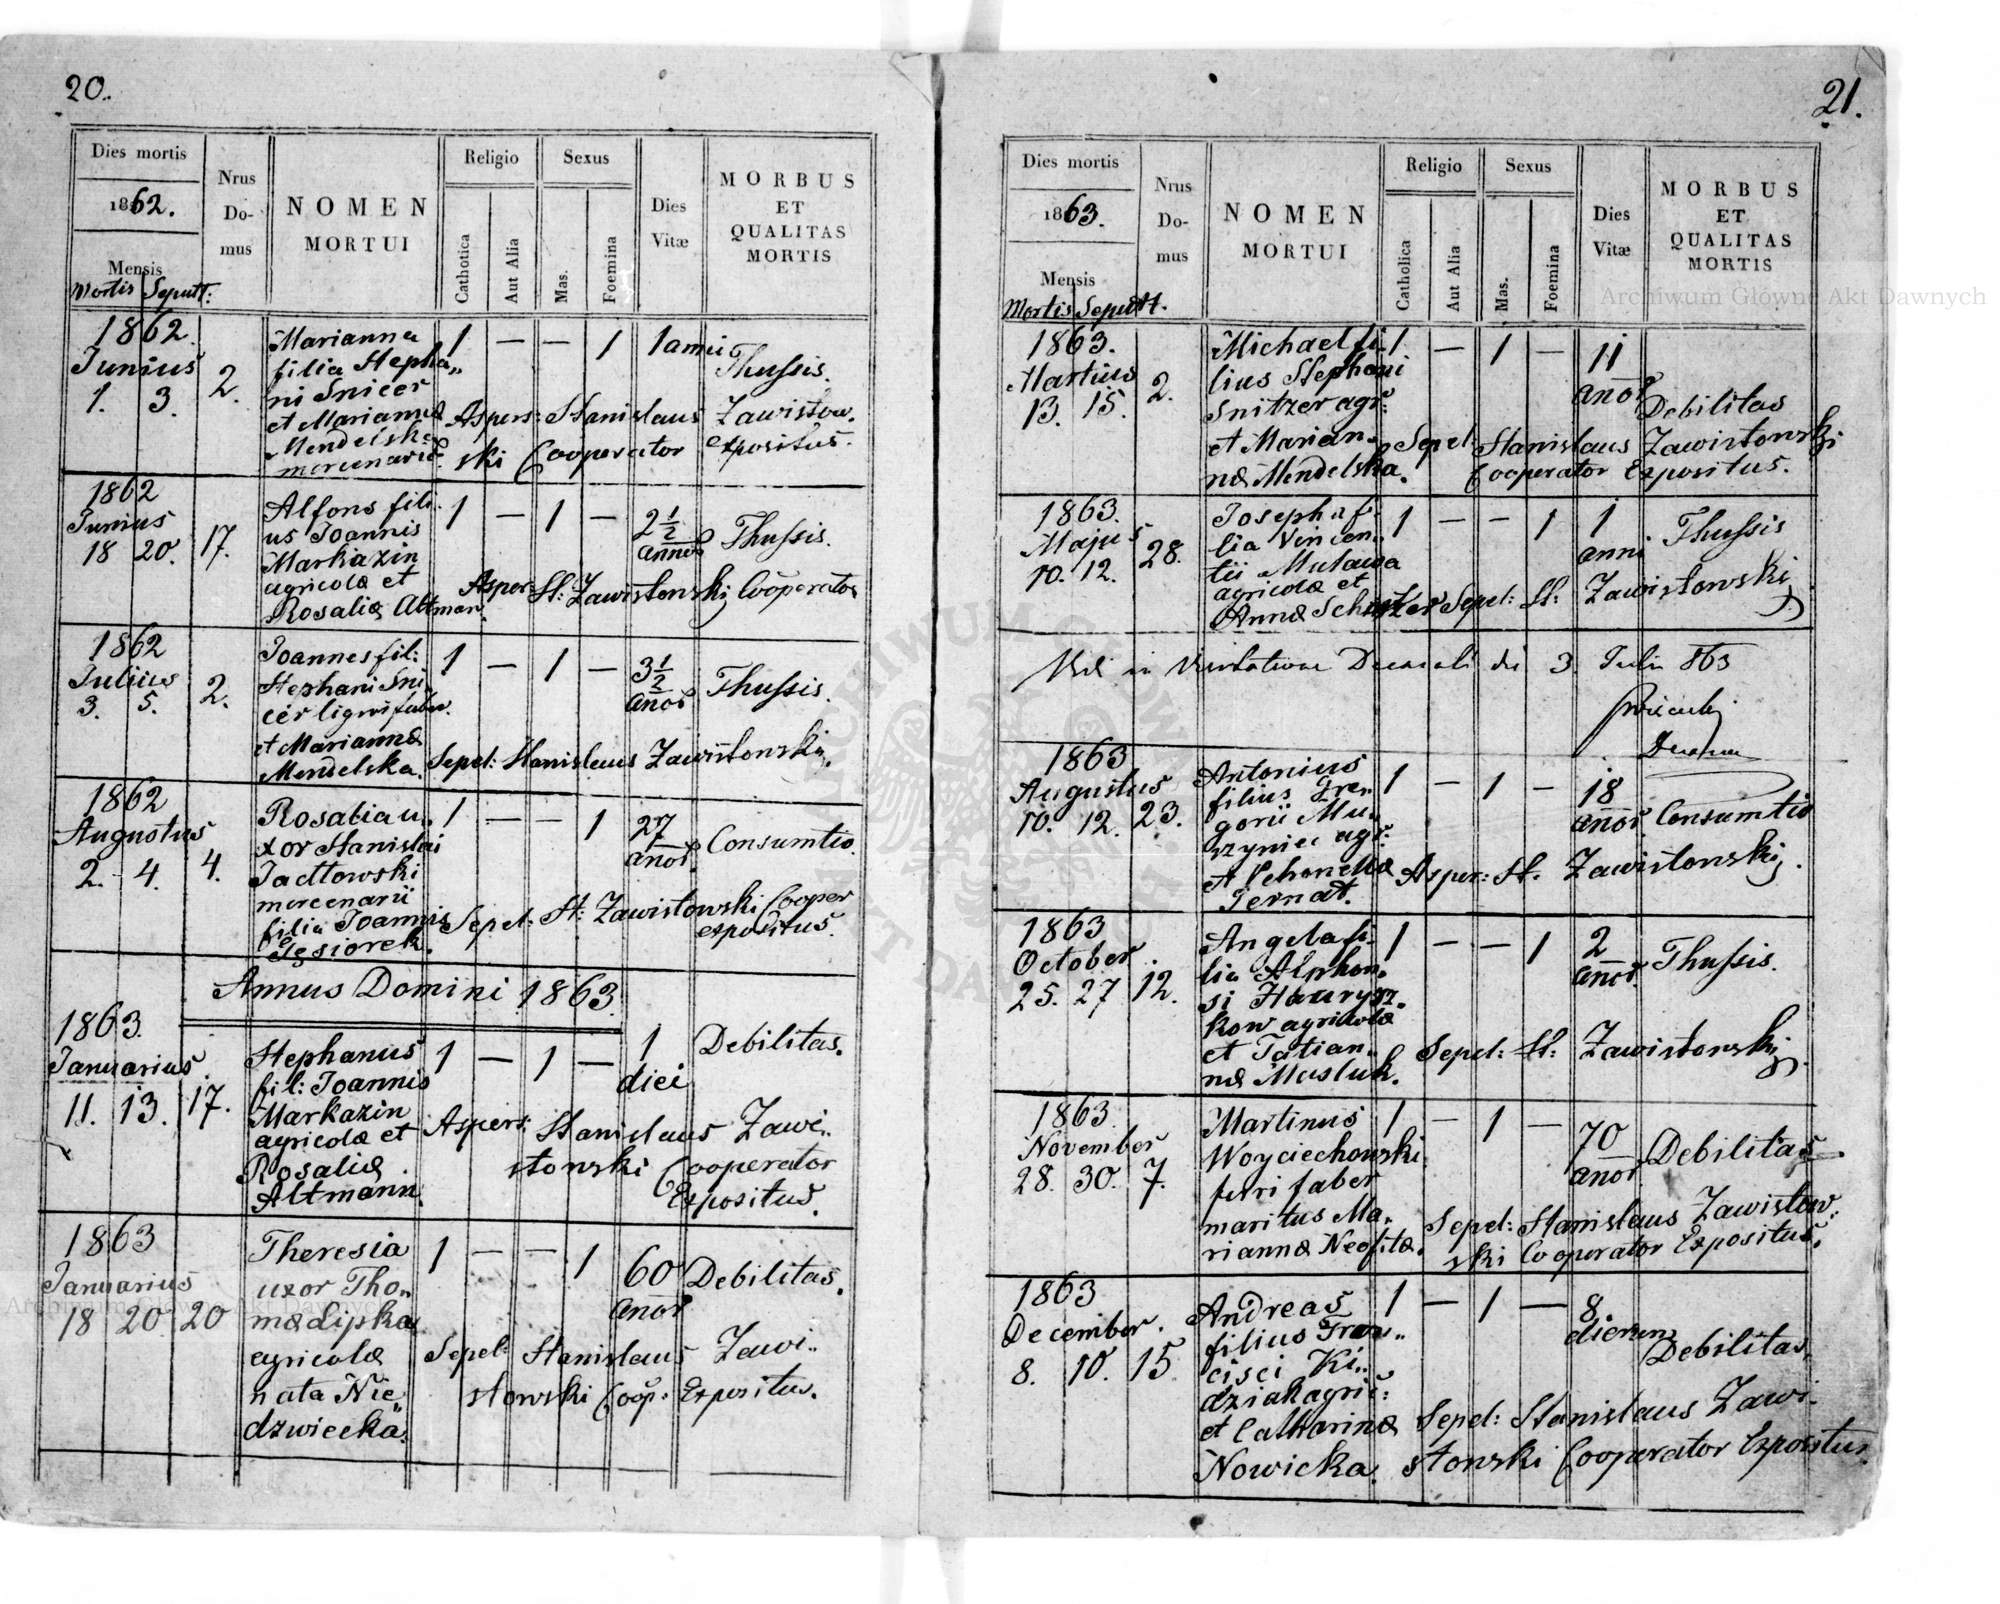 20.
Dies mortis
1862.
Mensis
Mortis Sepult:
Nrus
Do-
mus
NOMEN
MORTUI
Religio
Catholica
Aut Alia
Sexus
Mas.
Foemina
Dies
Vitæ
MORBUS
ET
QUALITAS
MORTIS
1862
Junius
1. 3.
2.
Marianna
filia Stepha„
ni Snicer
et Mariannæ
Mendelska
mercenariæ
1 — — 1
1 anni
Thussis.
Aspers: Stanislaus Zawistow.
ski Cooperator expositus.
1862
Junius
18 20.
17.
Alfons fili.
us Joannis
Markazin
agricolæ et
Rosaliæ Altman.
1 — 1 —
2 1/2
annor
Thussis.
Asper: St: Zawistowski Cooperator
1862
Julius
3. 5.
2.
Joannes fil:
Stephani Sni„
cer lignifaber
et Mariannæ
Mendelska.
1 — 1 —
3 1/2
anor
Thussis.
Sepel: Stanislaus Zawistowski.
1862
Augustus
2. 4.
4.
Rosalia u„
xor Stanislai
Jadłowski
mercenarii
filia Joannis
Gęsiorek.
1 — — 1
27
anor.
Consumtio.
Sepel: St: Zawistowski Cooper
expositus.
Annus Domini 1863.
1863.
Januarius.
11. 13.
17.
Stephanus
fil: Joannis
Markazin
agricolæ et
Rosaliæ
Altmann.
1 — 1 —
1
diei
Debilitas.
Aspers: Stanislaus Zawi„
stowski Cooperator
Expositus.
1863
Januarius
18 20
20
Theresia
uxor Tho„
mæ Lipka
agricolæ
nata Nie„
dzwiecka.
1 — — 1
60
anor
Debilitas.
Sepel: Stanislaus Zawi„
stowski Coop: Expositus.
21.
Dies mortis
1863.
Mensis
Mortis Sepult.
Nrus
Do-
mus
NOMEN
MORTUI
Religio
Catholica
Aut Alia
Sexus
Mas.
Foemina
Dies
Vitæ
MORBUS
ET
QUALITAS
MORTIS
1863.
Martius
13. 15.
2.
Michael fi„
lius Stephani
Snitzer agr:
et Marian„
næ Mendelska.
1 — 1 —
11
anor
Debilitas
Sepel: Stanislaus Zawistowski
Cooperator Expositus.
1863.
Majus
10. 12.
28.
Josepha fi„
lia Vincen„
tii Mulawa
agricolæ et
Annæ Schuster
1 — — 1
1
anni
Thussis
Sepel: St: Zawistowski
in Visitatione Decanali die 3. Julii 863
1863
Augustus
10. 12.
23.
Antonius
filius Gre„
gorii Mu„
szyniec agr:
et Pehonellæ
Gernat.
1 — 1 —
18
anor.
Consumtio
Asper: St. Zawistowski.
1863
October
25. 27
12.
Angela fi„
lia Alphon„
si Hawrysz„
kow agricolæ
et Tatian„
næ Masluk.
1 — — 1
2
anor.
Thussis.
Sepel: St: Zawistowski.
1863.
November
28. 30.
7.
Martinus
Woyciechowski
ferri faber
maritus Ma„
riannæ Neofitæ.
1 — 1 —
70
anor.
Debilitas.
Sepel: Stanislaus Zawistow„
ski Cooperator Expositus.
1863
December.
8. 10.
15
Andreas
filius Fran„
cisci Ki„
dziak agric:
et Catharinæ
Nowicka.
1 — 1 —
8
dierum
Debilitas.
Sepel: Stanislaus Zawi„
stowski Cooperator Expositus.
Archiwum Główne Akt Dawnych
Archiwum Główne Akt Dawnych
ARCHIWUM GŁÓWNE AKT DAWNYCH